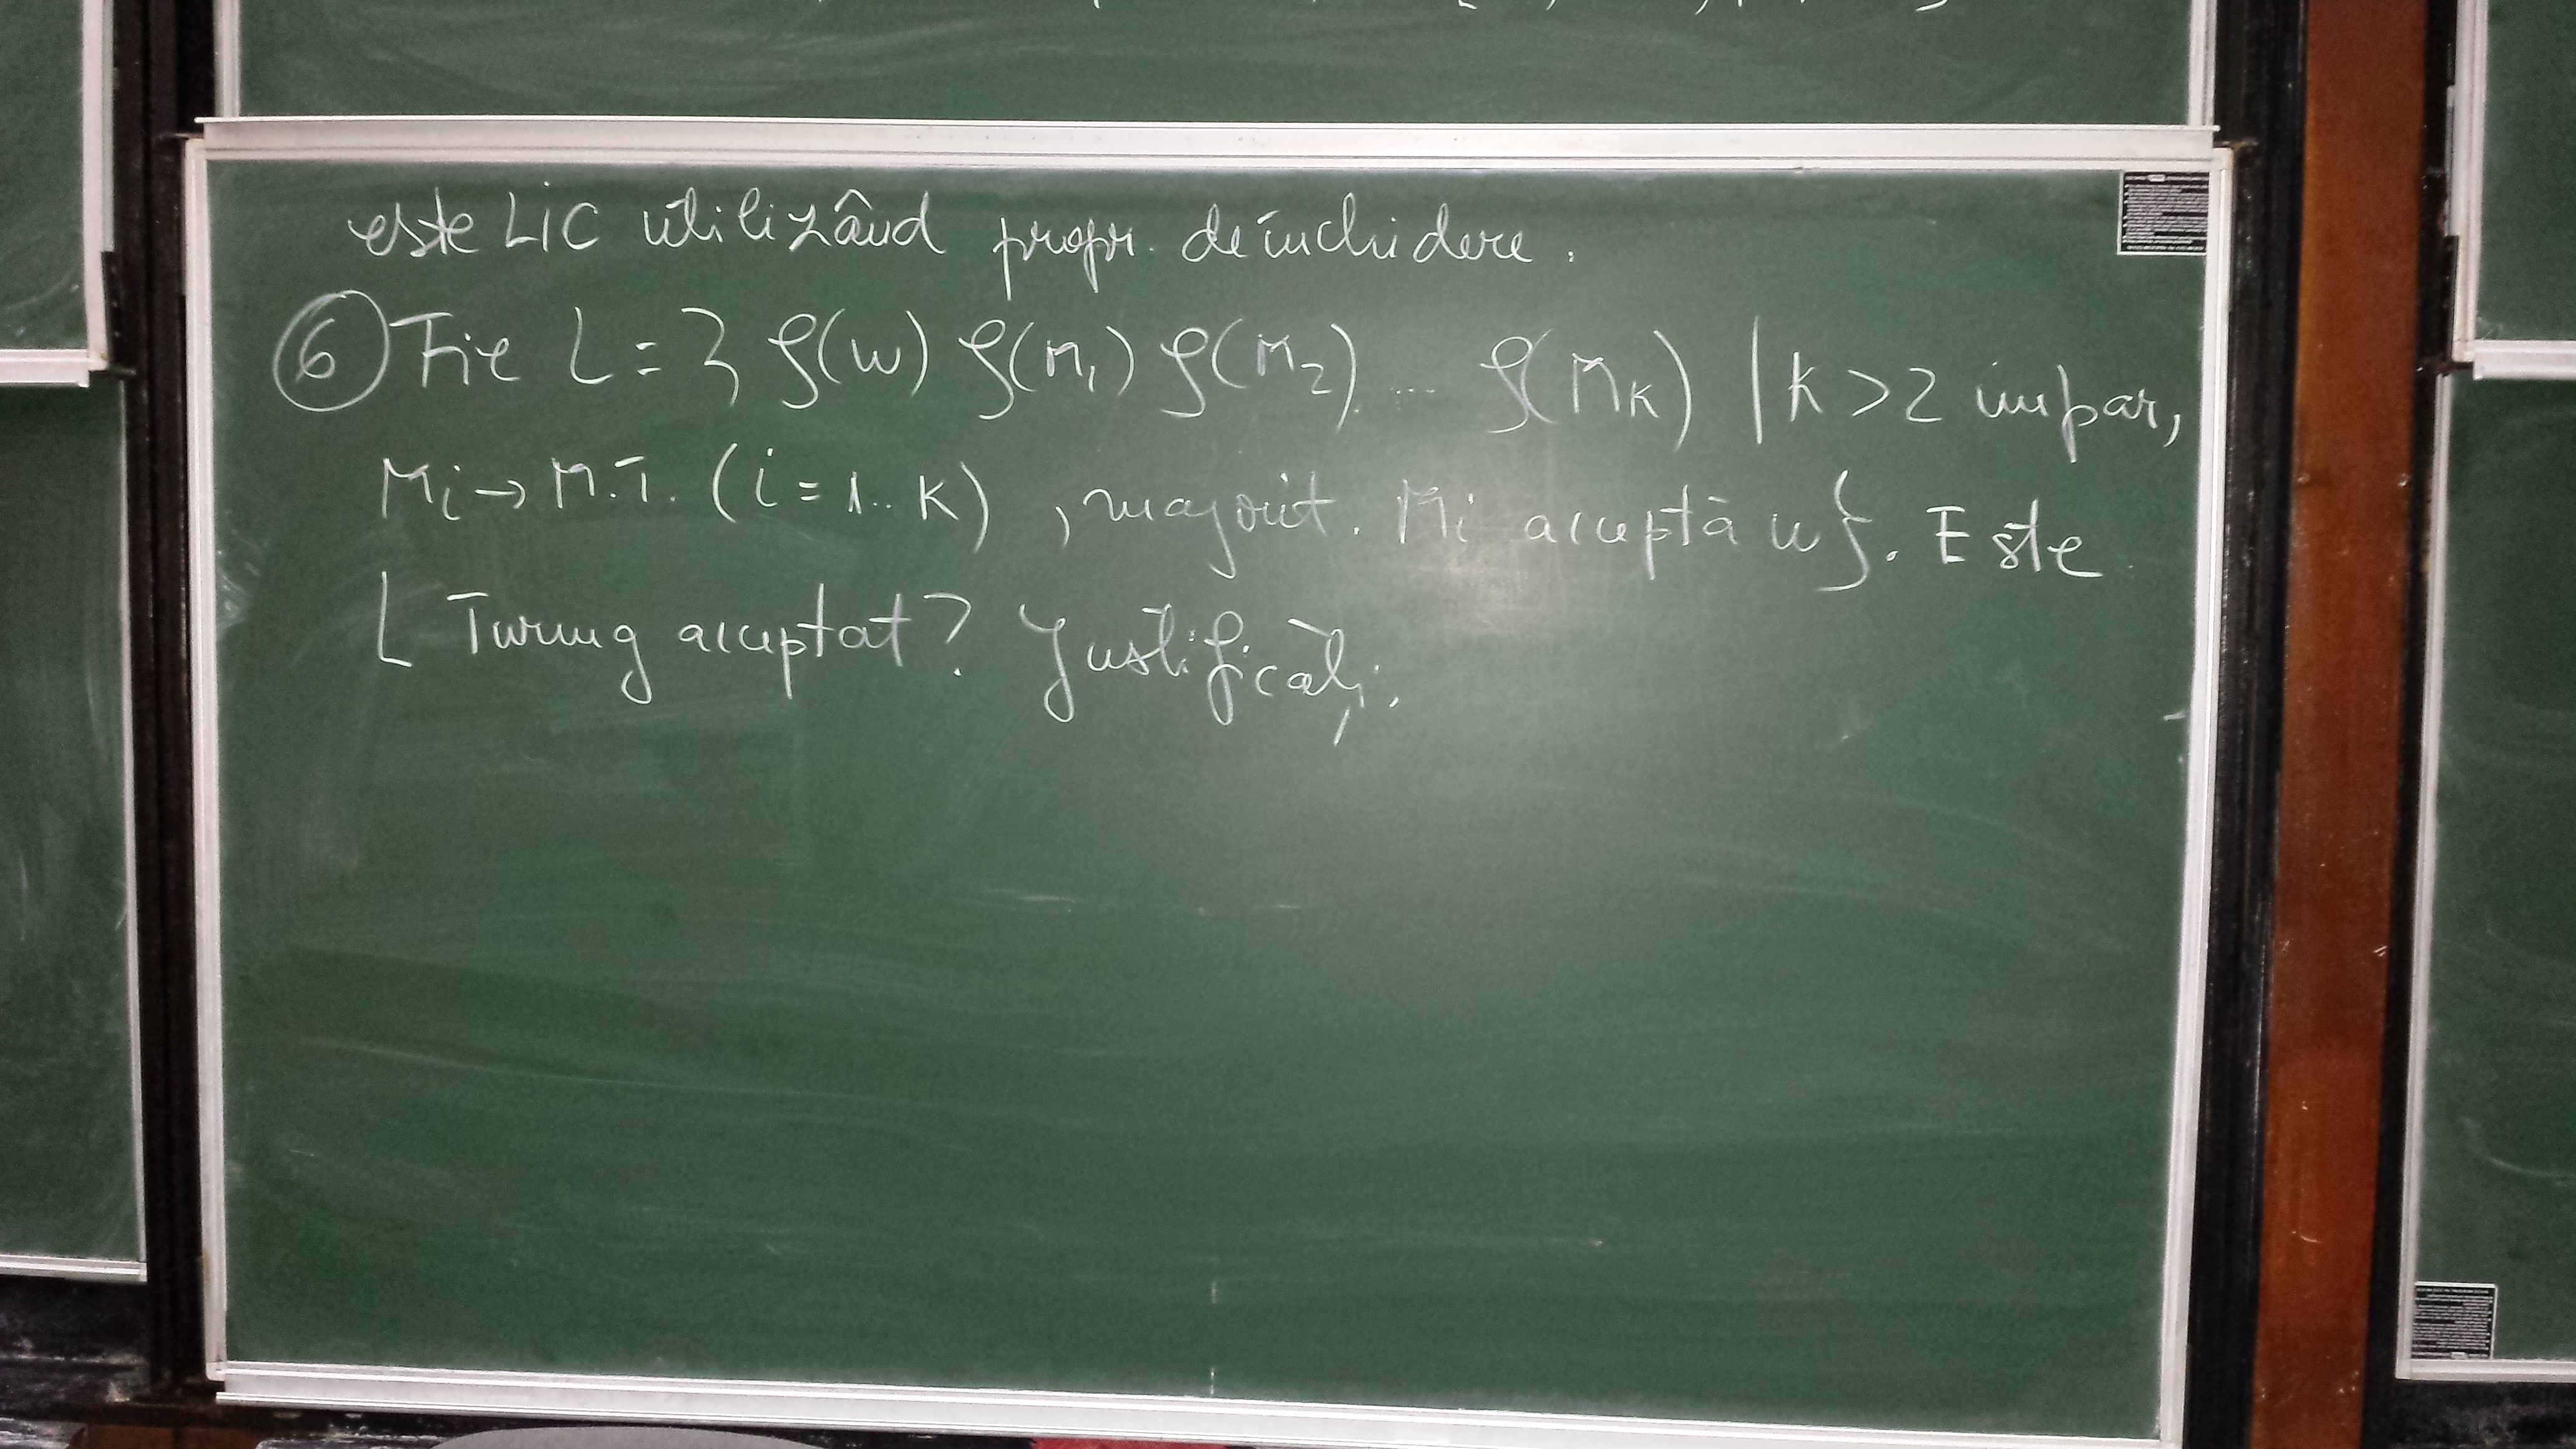 este LIC utilizând propr. de închidere.
⑥ Fie L = { ρ(w) ρ(M₁) ρ(M₂) ... ρ(Mₖ) | k > 2 impar,
Mi → M.T. (i = 1..k), majorit. Mi acceptă w}. Este
L Turing acceptat? Justificați.